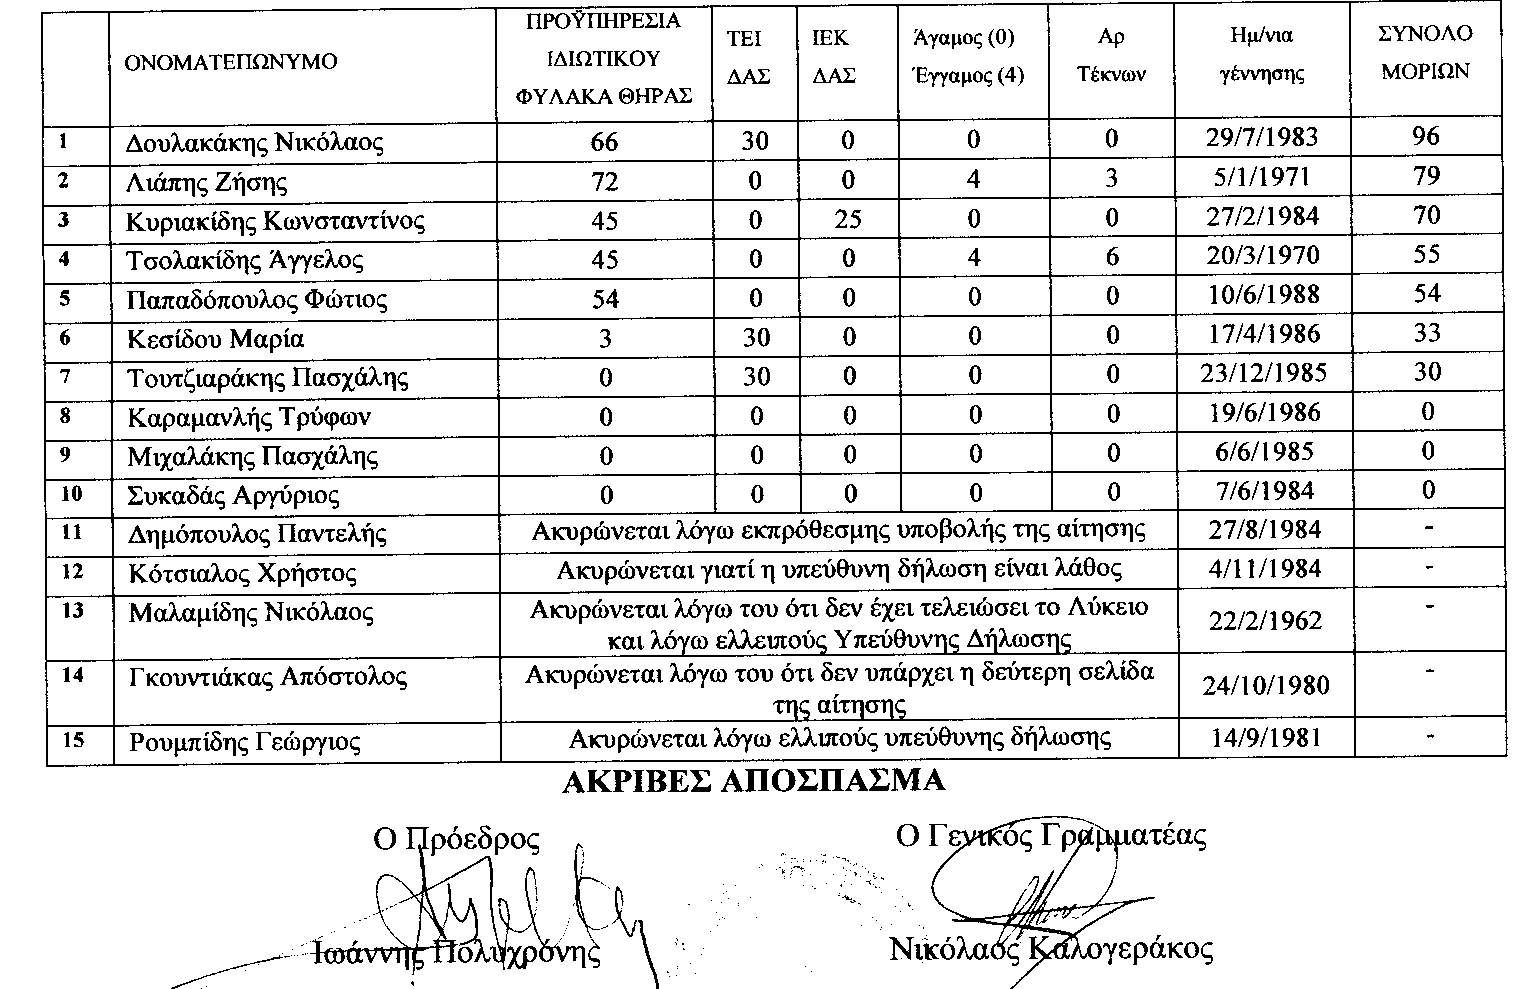 ΟΝΟΜΑΤΕΠΩΝΥΜΟ ΠΡΟΫΠΗΡΕΣΙΑ ΙΔΙΩΤΙΚΟΥ ΦΥΛΑΚΑ ΘΗΡΑΣ ΤΕΙ ΔΑΣ ΙΕΚ ΔΑΣ Άγαμος (0) Έγγαμος (4) Αρ Τέκνων Ημ/νια γέννησης ΣΥΝΟΛΟ ΜΟΡΙΩΝ
1 Δουλακάκης Νικόλαος 66 30 0 0 0 29/7/1983 96
2 Λιάπης Ζήσης 72 0 0 4 3 5/1/1971 79
3 Κυριακίδης Κωνσταντίνος 45 0 25 0 0 27/2/1984 70
4 Τσολακίδης Άγγελος 45 0 0 4 6 20/3/1970 55
5 Παπαδόπουλος Φώτιος 54 0 0 0 0 10/6/1988 54
6 Κεσίδου Μαρία 3 30 0 0 0 17/4/1986 33
7 Τουτζιαράκης Πασχάλης 0 30 0 0 0 23/12/1985 30
8 Καραμανλής Τρύφων 0 0 0 0 0 19/6/1986 0
9 Μιχαλάκης Πασχάλης 0 0 0 0 0 6/6/1985 0
10 Συκαδάς Αργύριος 0 0 0 0 0 7/6/1984 0
11 Δημόπουλος Παντελής Ακυρώνεται λόγω εκπρόθεσμης υποβολής της αίτησης 27/8/1984 -
12 Κότσιαλος Χρήστος Ακυρώνεται γιατί η υπεύθυνη δήλωση είναι λάθος 4/11/1984 -
13 Μαλαμίδης Νικόλαος Ακυρώνεται λόγω του ότι δεν έχει τελειώσει το Λύκειο και λόγω ελλειπούς Υπεύθυνης Δήλωσης 22/2/1962 -
14 Γκουντιάκας Απόστολος Ακυρώνεται λόγω του ότι δεν υπάρχει η δεύτερη σελίδα της αίτησης 24/10/1980 -
15 Ρουμπίδης Γεώργιος Ακυρώνεται λόγω ελλιπούς υπεύθυνης δήλωσης 14/9/1981 -
ΑΚΡΙΒΕΣ ΑΠΟΣΠΑΣΜΑ
Ο Πρόεδρος Ο Γενικός Γραμματέας
Ιωάννης Πολυχρόνης Νικόλαος Καλογεράκος